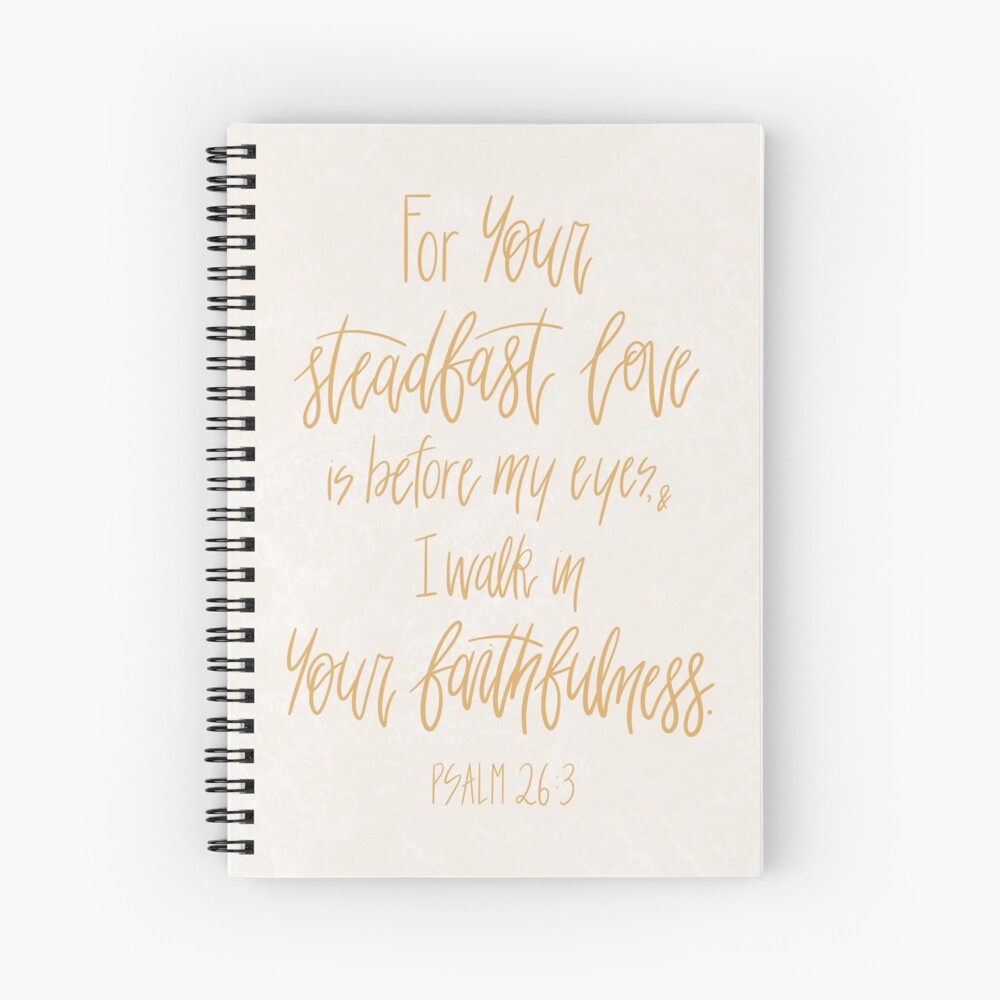 For Your
steadfast love
is before my eyes, &
I walk in
Your faithfulness.
PSALM 26:3